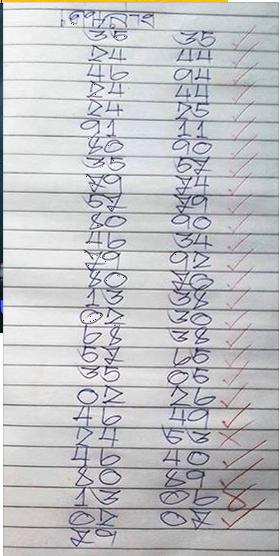 35 35 ✓
24 44 ✓
46 94 ✓
24 44 ✓
24 25 ✓
91 11 ✓
80 90 ✓
35 57 ✓
79 74 ✓
57 79 ✓
80 90 ✓
46 34 ✓
79 92 ✓
80 76 ✓
13 38 ✓
02 30 ✓
68 38 ✓
57 65 ✓
35 05 ✓
02 26 ✓
46 49 ✓
24 53 ✗
46 40 ✓
80 89 ✓
13 06 ✗
02 07 ✓
79